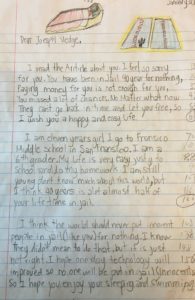 January 2
Dear Joseph Sledge,
I read the Article about you I feel so sorry
for you. You have been in jail 40 year for nothing,
Paying money for you is not enough for you,
You missed a lot of chances. No Matter what now
They can't go back in time and let you free, So
I wish you a happy and easy life.
I am eleven years girl, I go to Francisco
Middle School in San Francisco, I am a
6th grader. My life is very easy just go to
School and do my homework. I am still
young, don't know much about this world, but
I think 40 years is almost half of
your life time in jail.
I think the world should never put innocent
people in jail like you for nothing. I know
They didn't mean to do that, but it is just
not right. I hope one day technology will
improved so no one will be put in jail (innocent)
So I hope you enjoy your sleeping and Swimming